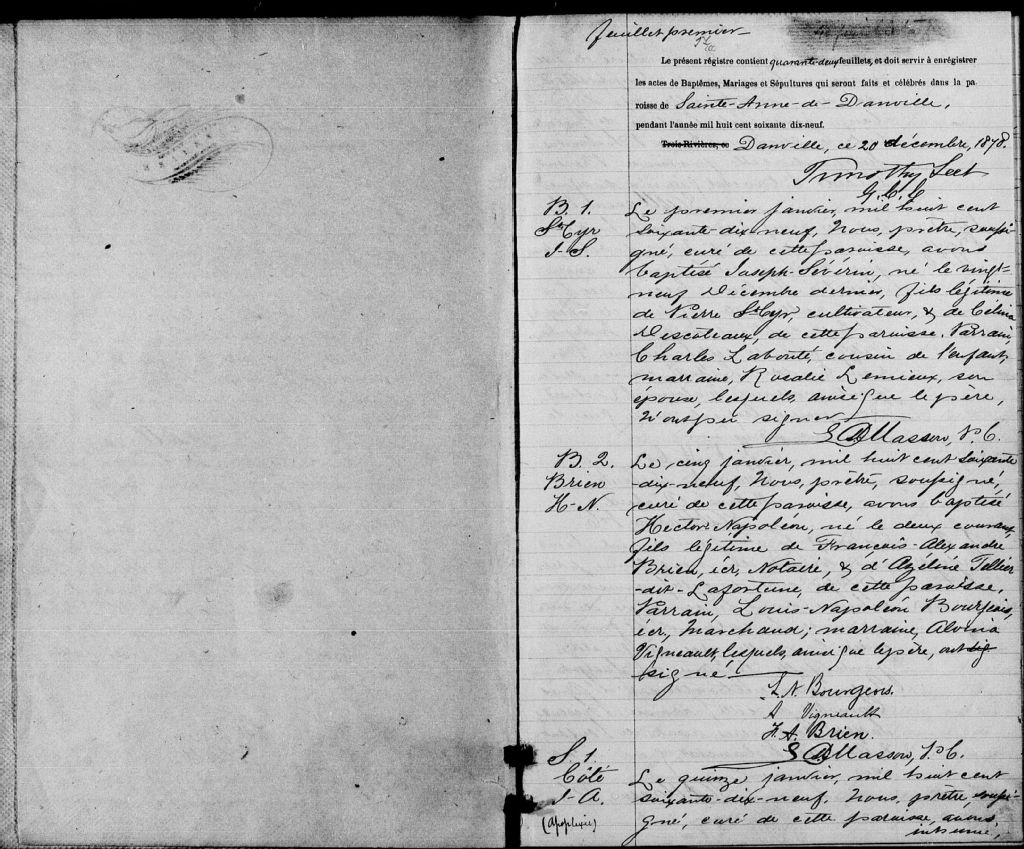 feuillet premier
Le présent régistre contient quarante-deux feuillets, et doit servir à enrégistrer
les actes de Baptêmes, Mariages et Sépultures qui seront faits et célébrés dans la pa
roisse de Sainte-Anne-de-Danville,
pendant l'année mil huit cent soixante dix-neuf.
Trois-Rivières, ce Danville, ce 20 décembre, 1878.
Timothy Leet
G. C. C
B. 1.
St Cyr
J-S.
Le premier janvier, mil huit cent
soixante-dix-neuf, Nous, prêtre, soussi-
gné, curé de cette paroisse, avons
baptisé Joseph-Sévérin, né le vingt-
neuf Décembre dernier, fils légitime
de Pierre St Cyr, cultivateur, & de Célina
Descoteaux, de cette paroisse. Parrain,
Charles Labonté, cousin de l'enfant,
marraine, Rosalie Lemieux, son
épouse, lesquels, ainsi que le père,
n'ont pu signer
Masson, P. C.
B. 2.
Brien
H-N.
Le cinq janvier, mil huit cent soixante
-dix-neuf, Nous, prêtre, soussigné,
curé de cette paroisse, avons baptisé
Hector Napoléon, né le deux courant,
fils légitime de François-Alexandre
Brien, écr, Notaire, & d'Azéline Tellier
-dit-Lafortune, de cette paroisse.
Parrain, Louis-Napoléon Bourgeois,
écr, Marchand; marraine, Alvina
Vigneault, lesquels, ainsi que le père, ont sig
signé.
L. N. Bourgeois.
A Vigneault
F. A. Brien.
Masson, P. C.
S. 1.
Côté
J-A.
(apoplexie)
Le quinze janvier, mil huit cent
soixante-dix-neuf, Nous, prêtre, soussi-
gné, curé de cette paroisse, avons
inhumé,